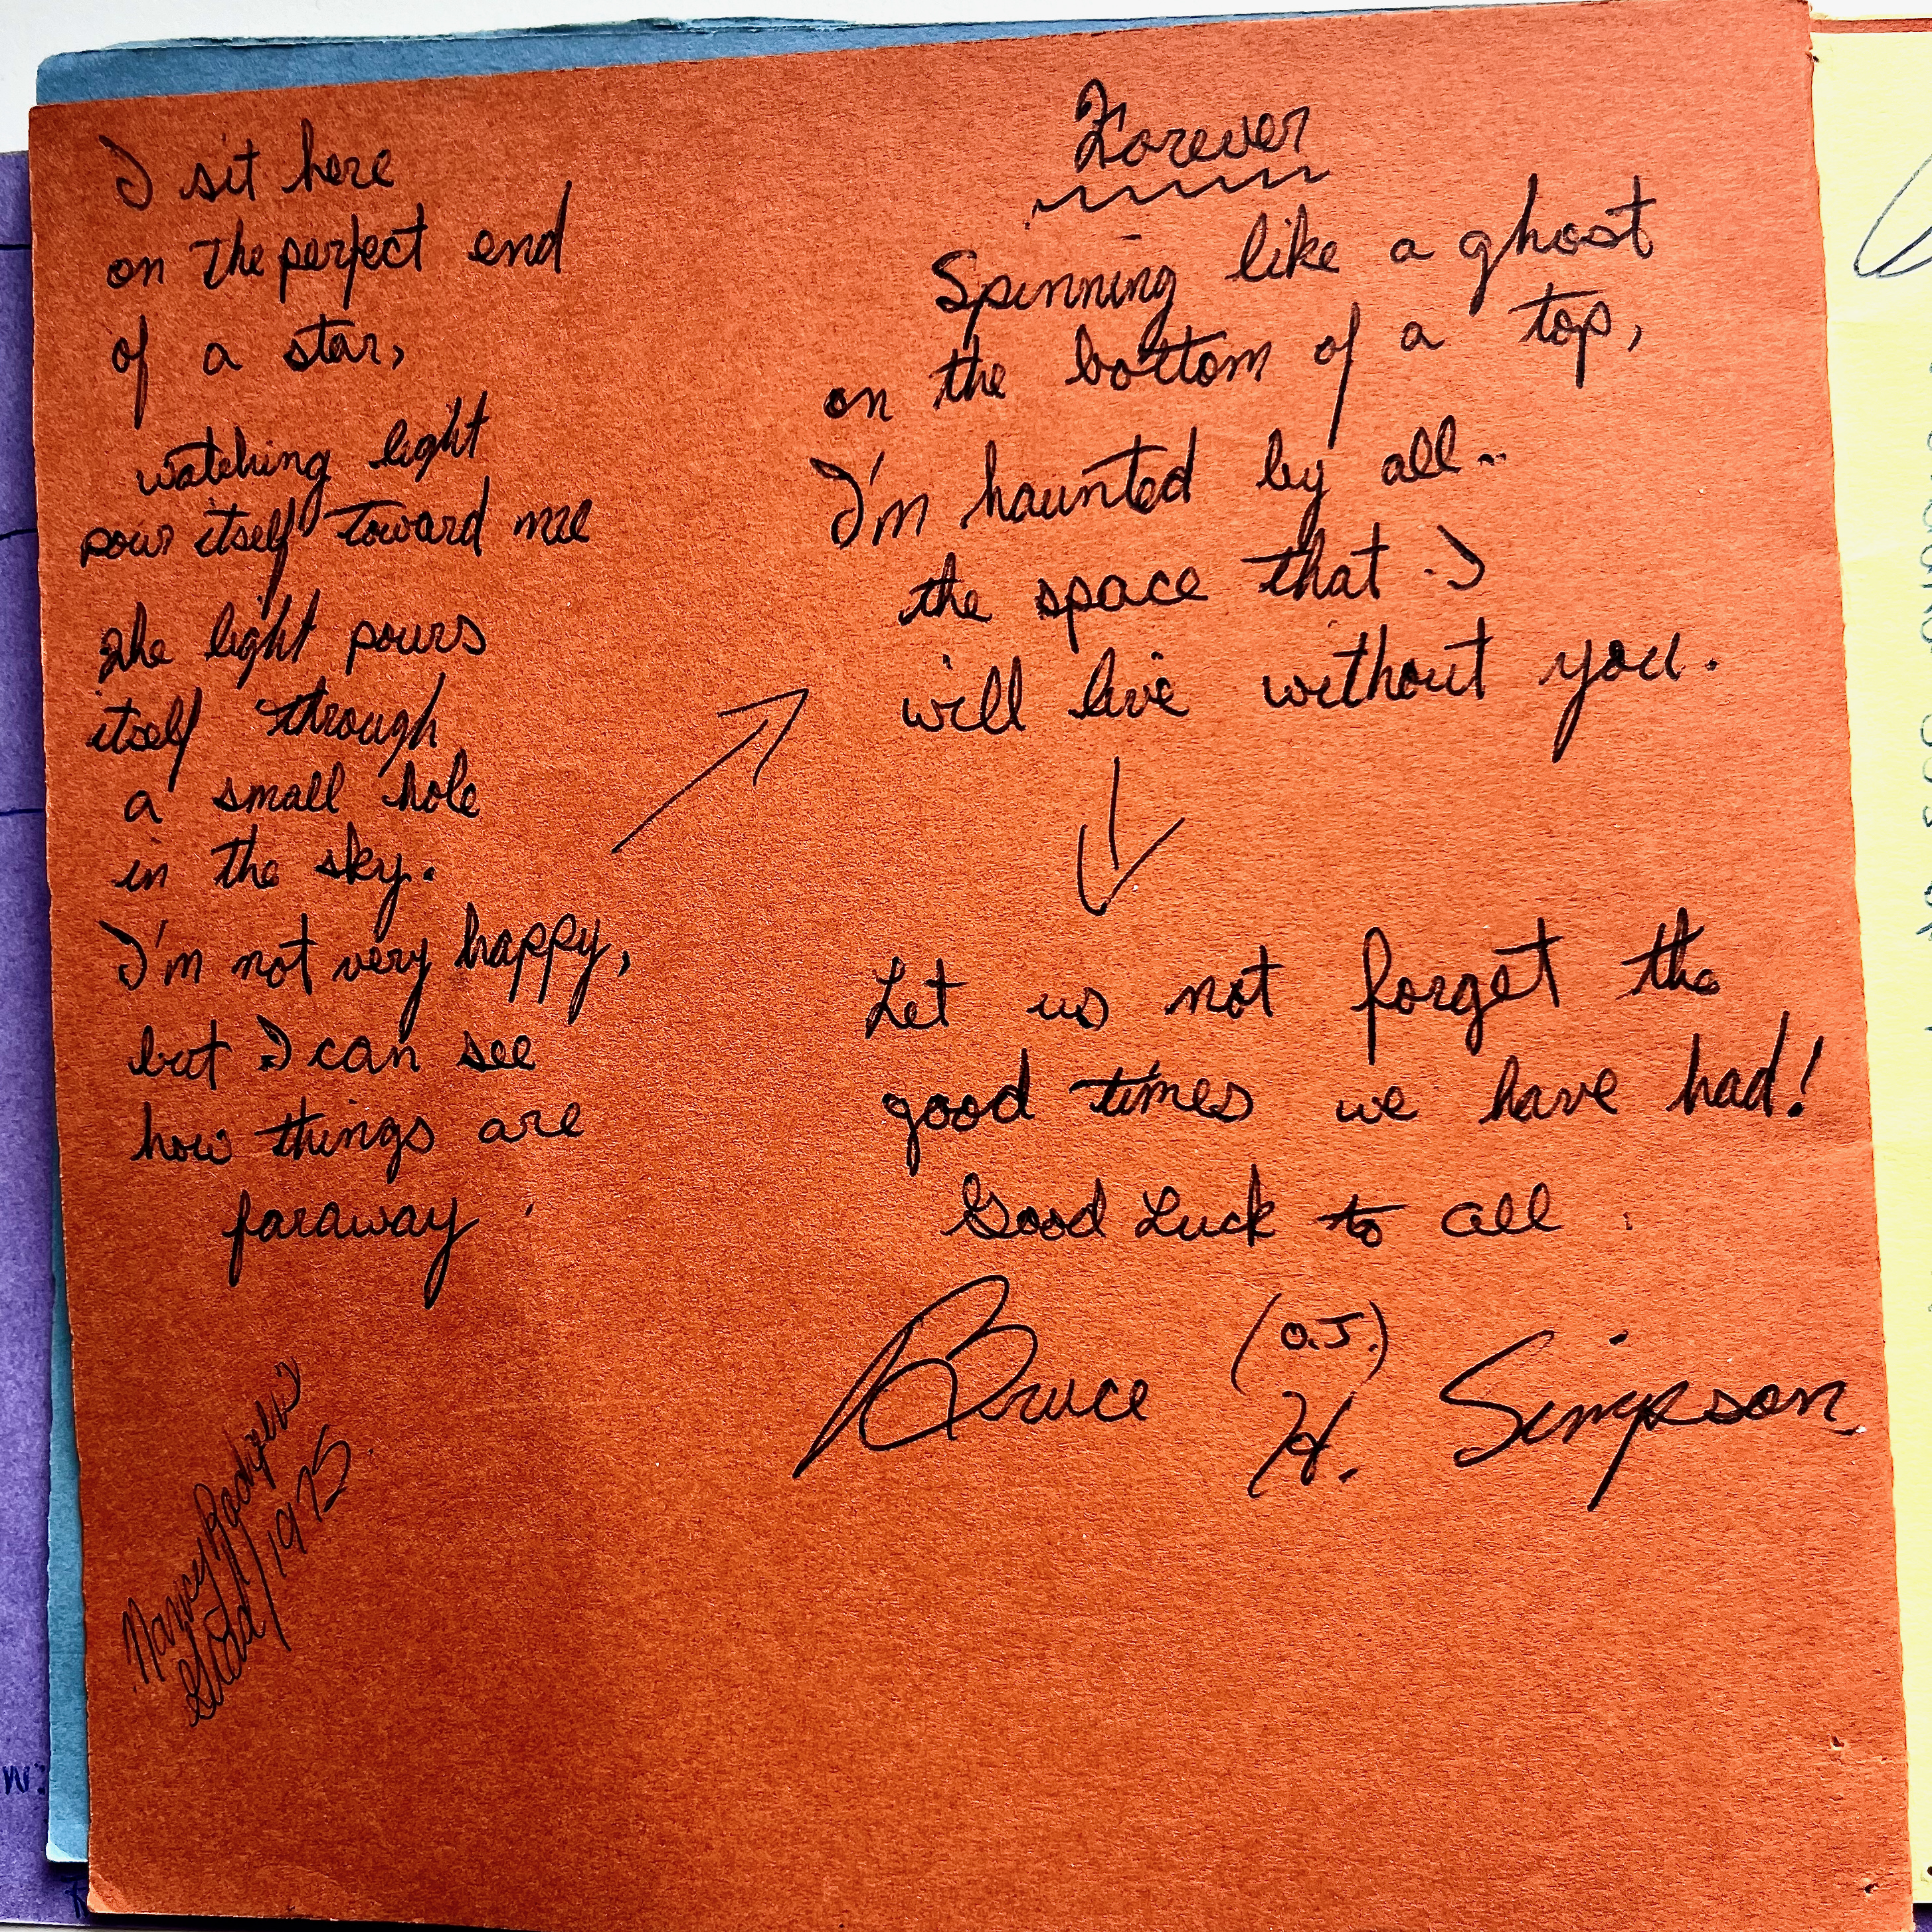 I sit here
on the perfect end
of a star,
watching light
pour itself toward me
The light pours
itself through
a small hole
in the sky.
I'm not very happy,
but I can see
how things are
faraway.
Nancy
Grad/1975
Forever
Spinning like a ghost
on the bottom of a top,
I'm haunted by all..
the space that I
will live without you.
Let us not forget the
good times we have had!
Good Luck to all
Bruce (O.J.) H. Simpson
W: